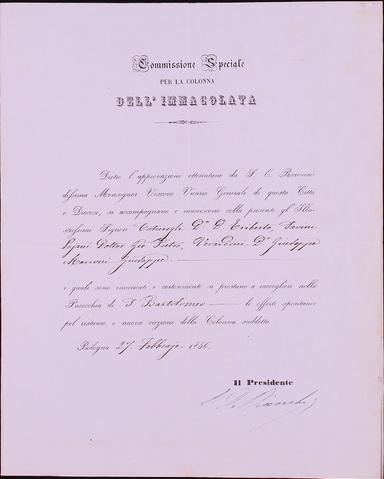 Commissione Speciale
PER LA COLONNA
DELL'IMMACOLATA
Dietro l'approvazione ottenutane da S. E. Reveren-
dissima Monsignor Vescovo Vicario Generale di questa Città
e Diocesi, si accompagnano e muniscono colla presente gl' Illu-
strissimi Signori D. Eriberto,
Dottor Gio Pietro, Verardini Dr Giuseppe
Marconi Giuseppe
i quali sono incaricati e a raccogliere nella
Parrocchia di S. Bartolomeo le offerte spontanee
pel restauro e nuova erezione della Colonna suddetta.
Bologna 27 Febbrajo 1856.
Il Presidente